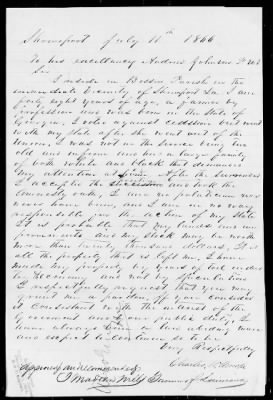 Shreveport July 11th 1866
To his excellency Andrew Johnson P. U S
Sir
I reside in Bossier Parish in the
immediate vicinity of Shreveport La I am
forty eight years of age, a farmer by
profession and was born in the state of
Georgia, I voted against cession but went
with my state after she went out of the
Union, I was not in the service being too
old and infirm and had a large family
of both white and black that demanded
my attention at home After the surrender
I accepted the and took the
amnesty oath, I am no politician nor
never have been, and I am in no way
responsible for the action of my State
It is probable that my lands and im
provements and my stock may be worth
more than twenty thousand dollars, It is
all the property that is left me, I have
made my property by years of toil under
the and not by speculating
I respectfully request that you may
grant me a pardon, If you consider
it consistent with the interest of the
Government and your public duty, I
have always been a law abiding man
and expect to continue to be
Very Respectfully
Charles
approved and recommended
J Madison Wells Governor of Louisiana